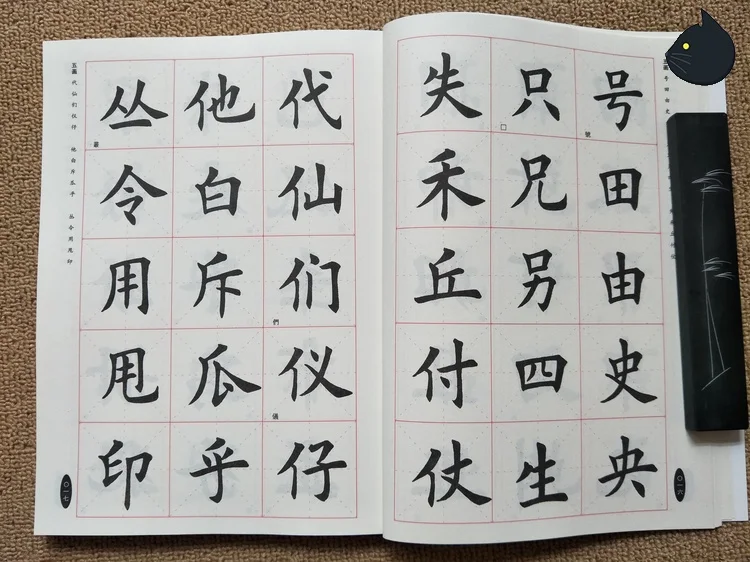 五画 号田由史
号田由史央
號
只兄另四生
失禾丘付仗
〇一六
代仙们仪仔
們
儀
他白斥瓜乎
丛令用甩印
叢
五画 代仙们仪仔 他白斥瓜乎 丛令用甩印
〇一七